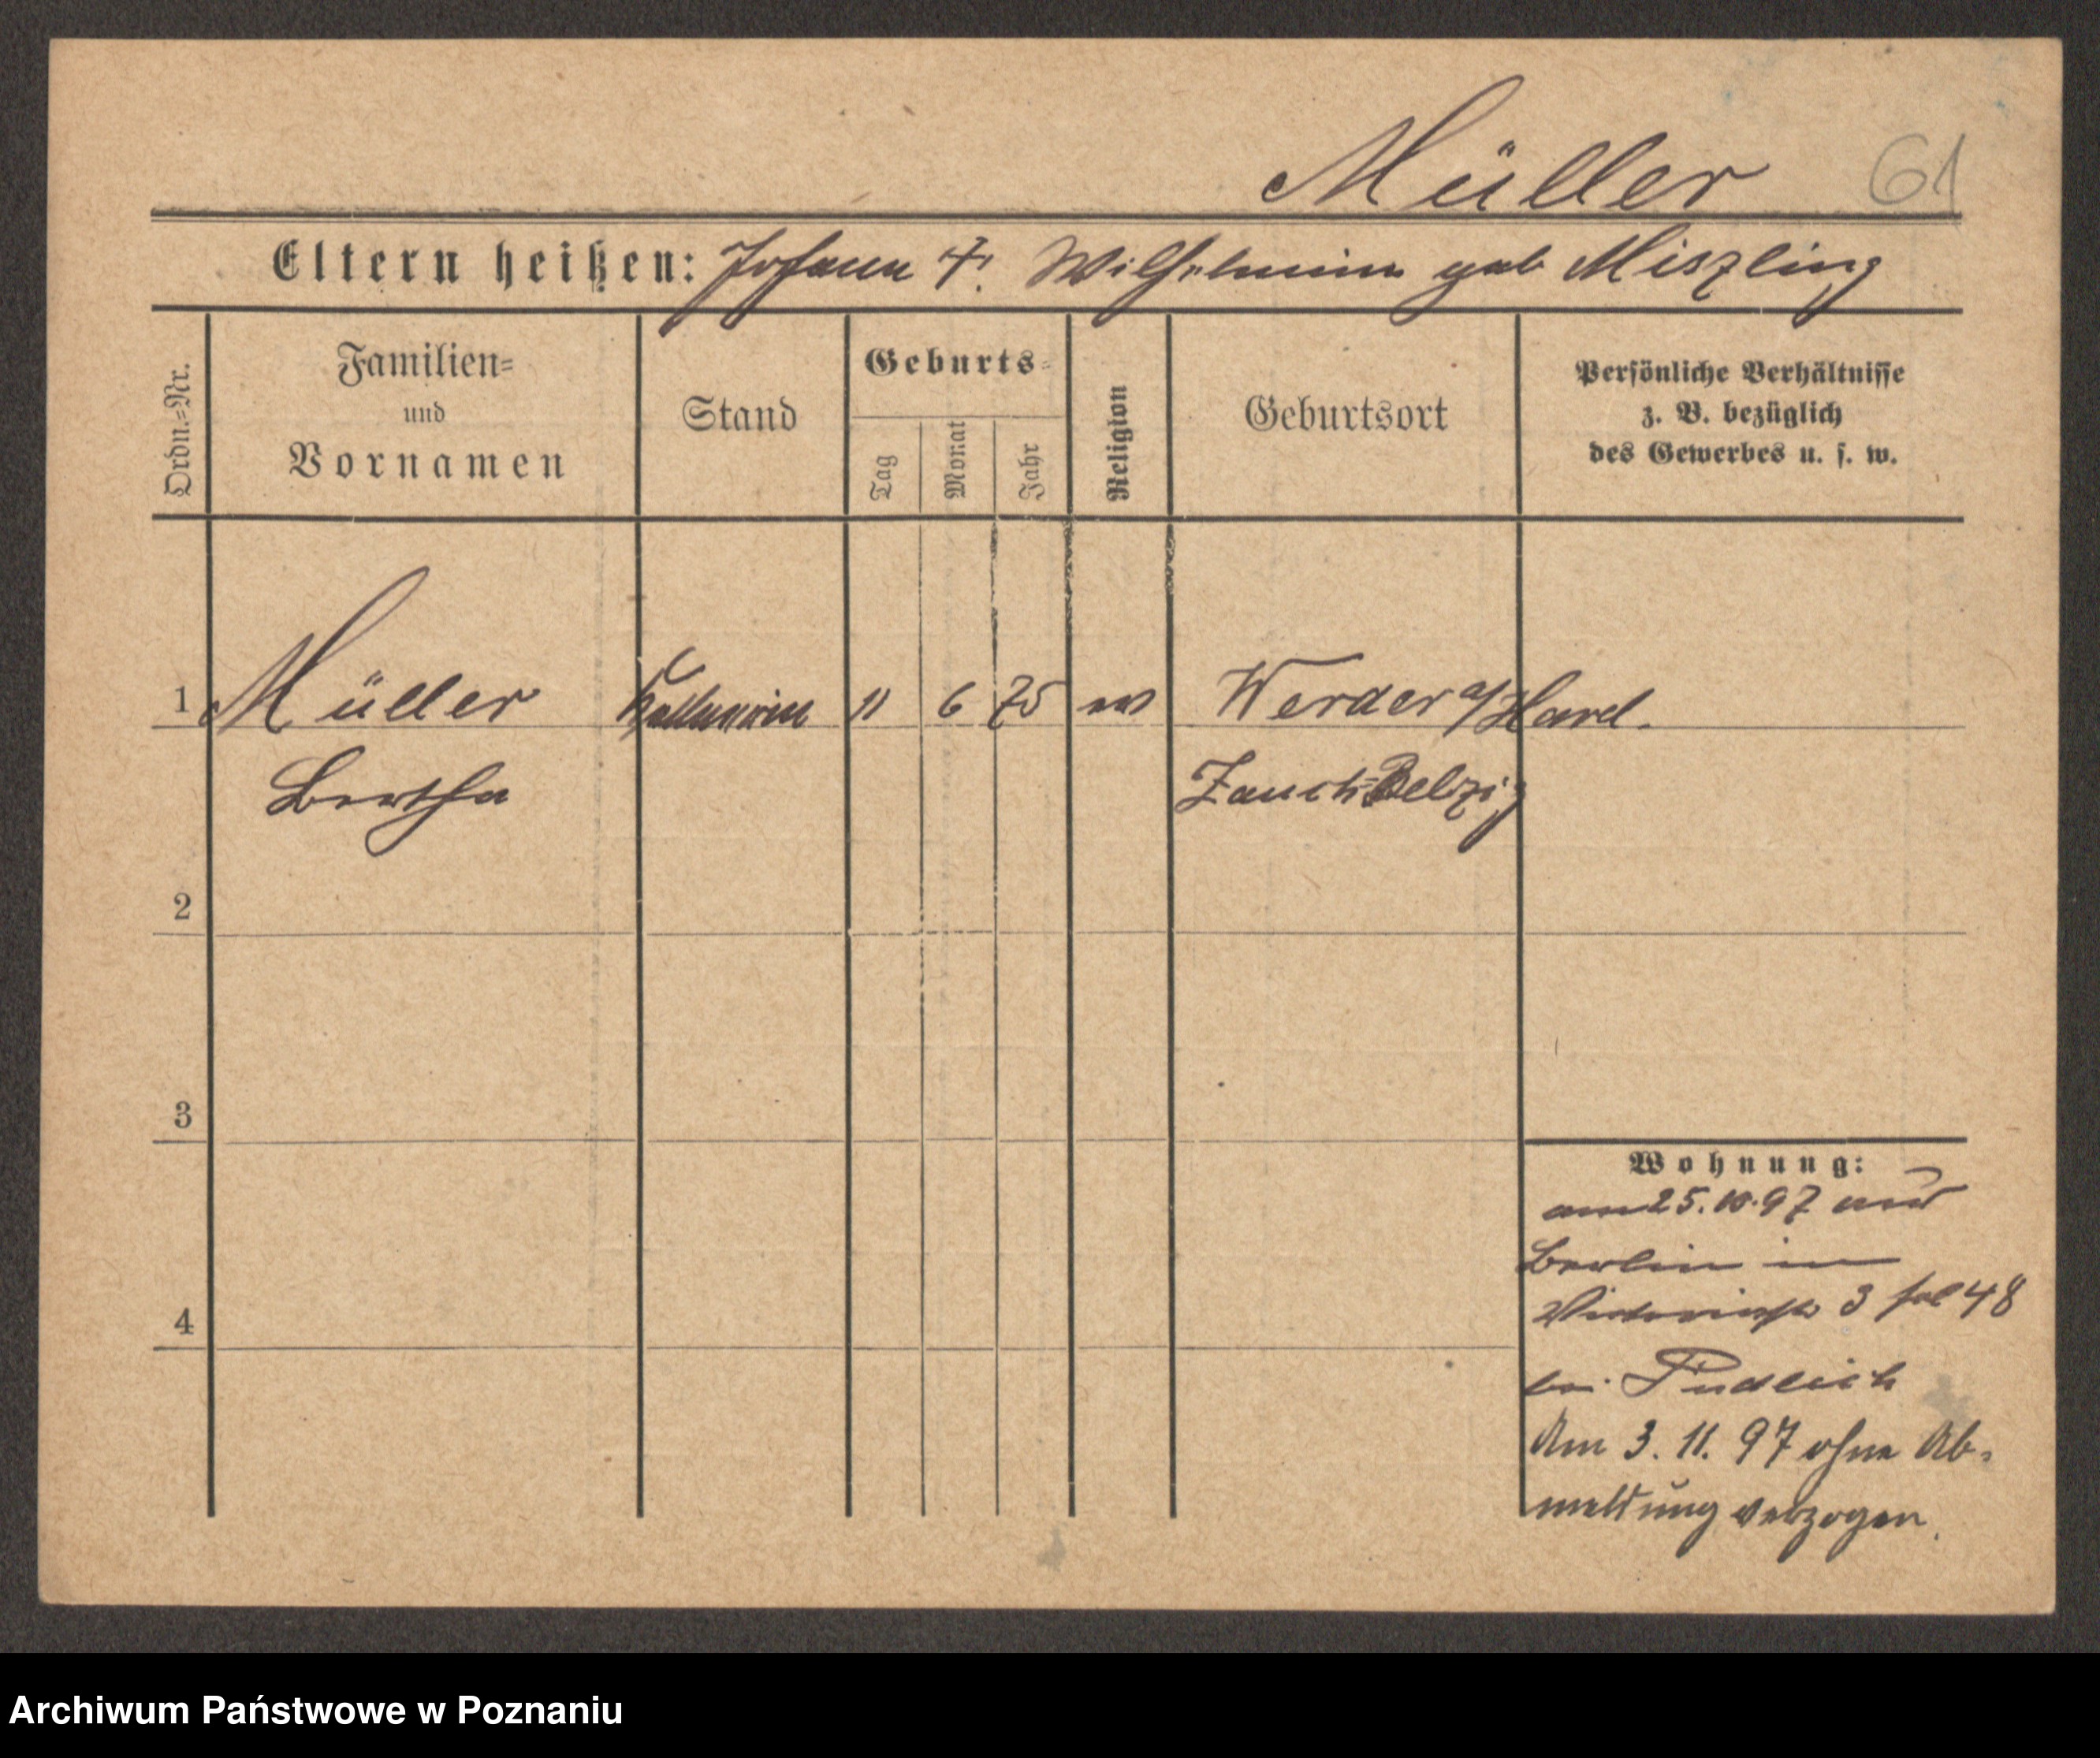 Müller 61
Eltern heißen: Johann †. Wilhelmine geb Miszling
Ordn.-Nr.
Familien-
und
Vornamen
Stand
Geburts-
Tag
Monat
Jahr
Religion
Geburtsort
Persönliche Verhältnisse
z. B. bezüglich
des Gewerbes u. s. w.
1 Müller Kellnerin 11 6 75 ev Werder a/Havel.
Bertha Zauch-Belzig
2
3
4
Wohnung:
am 25. 10. 97 aus
Berlin in
Victoriastr 3 48
bei Pudlich
Am 3. 11. 97 ohne Ab-
meldung verzogen.
Archiwum Państwowe w Poznaniu